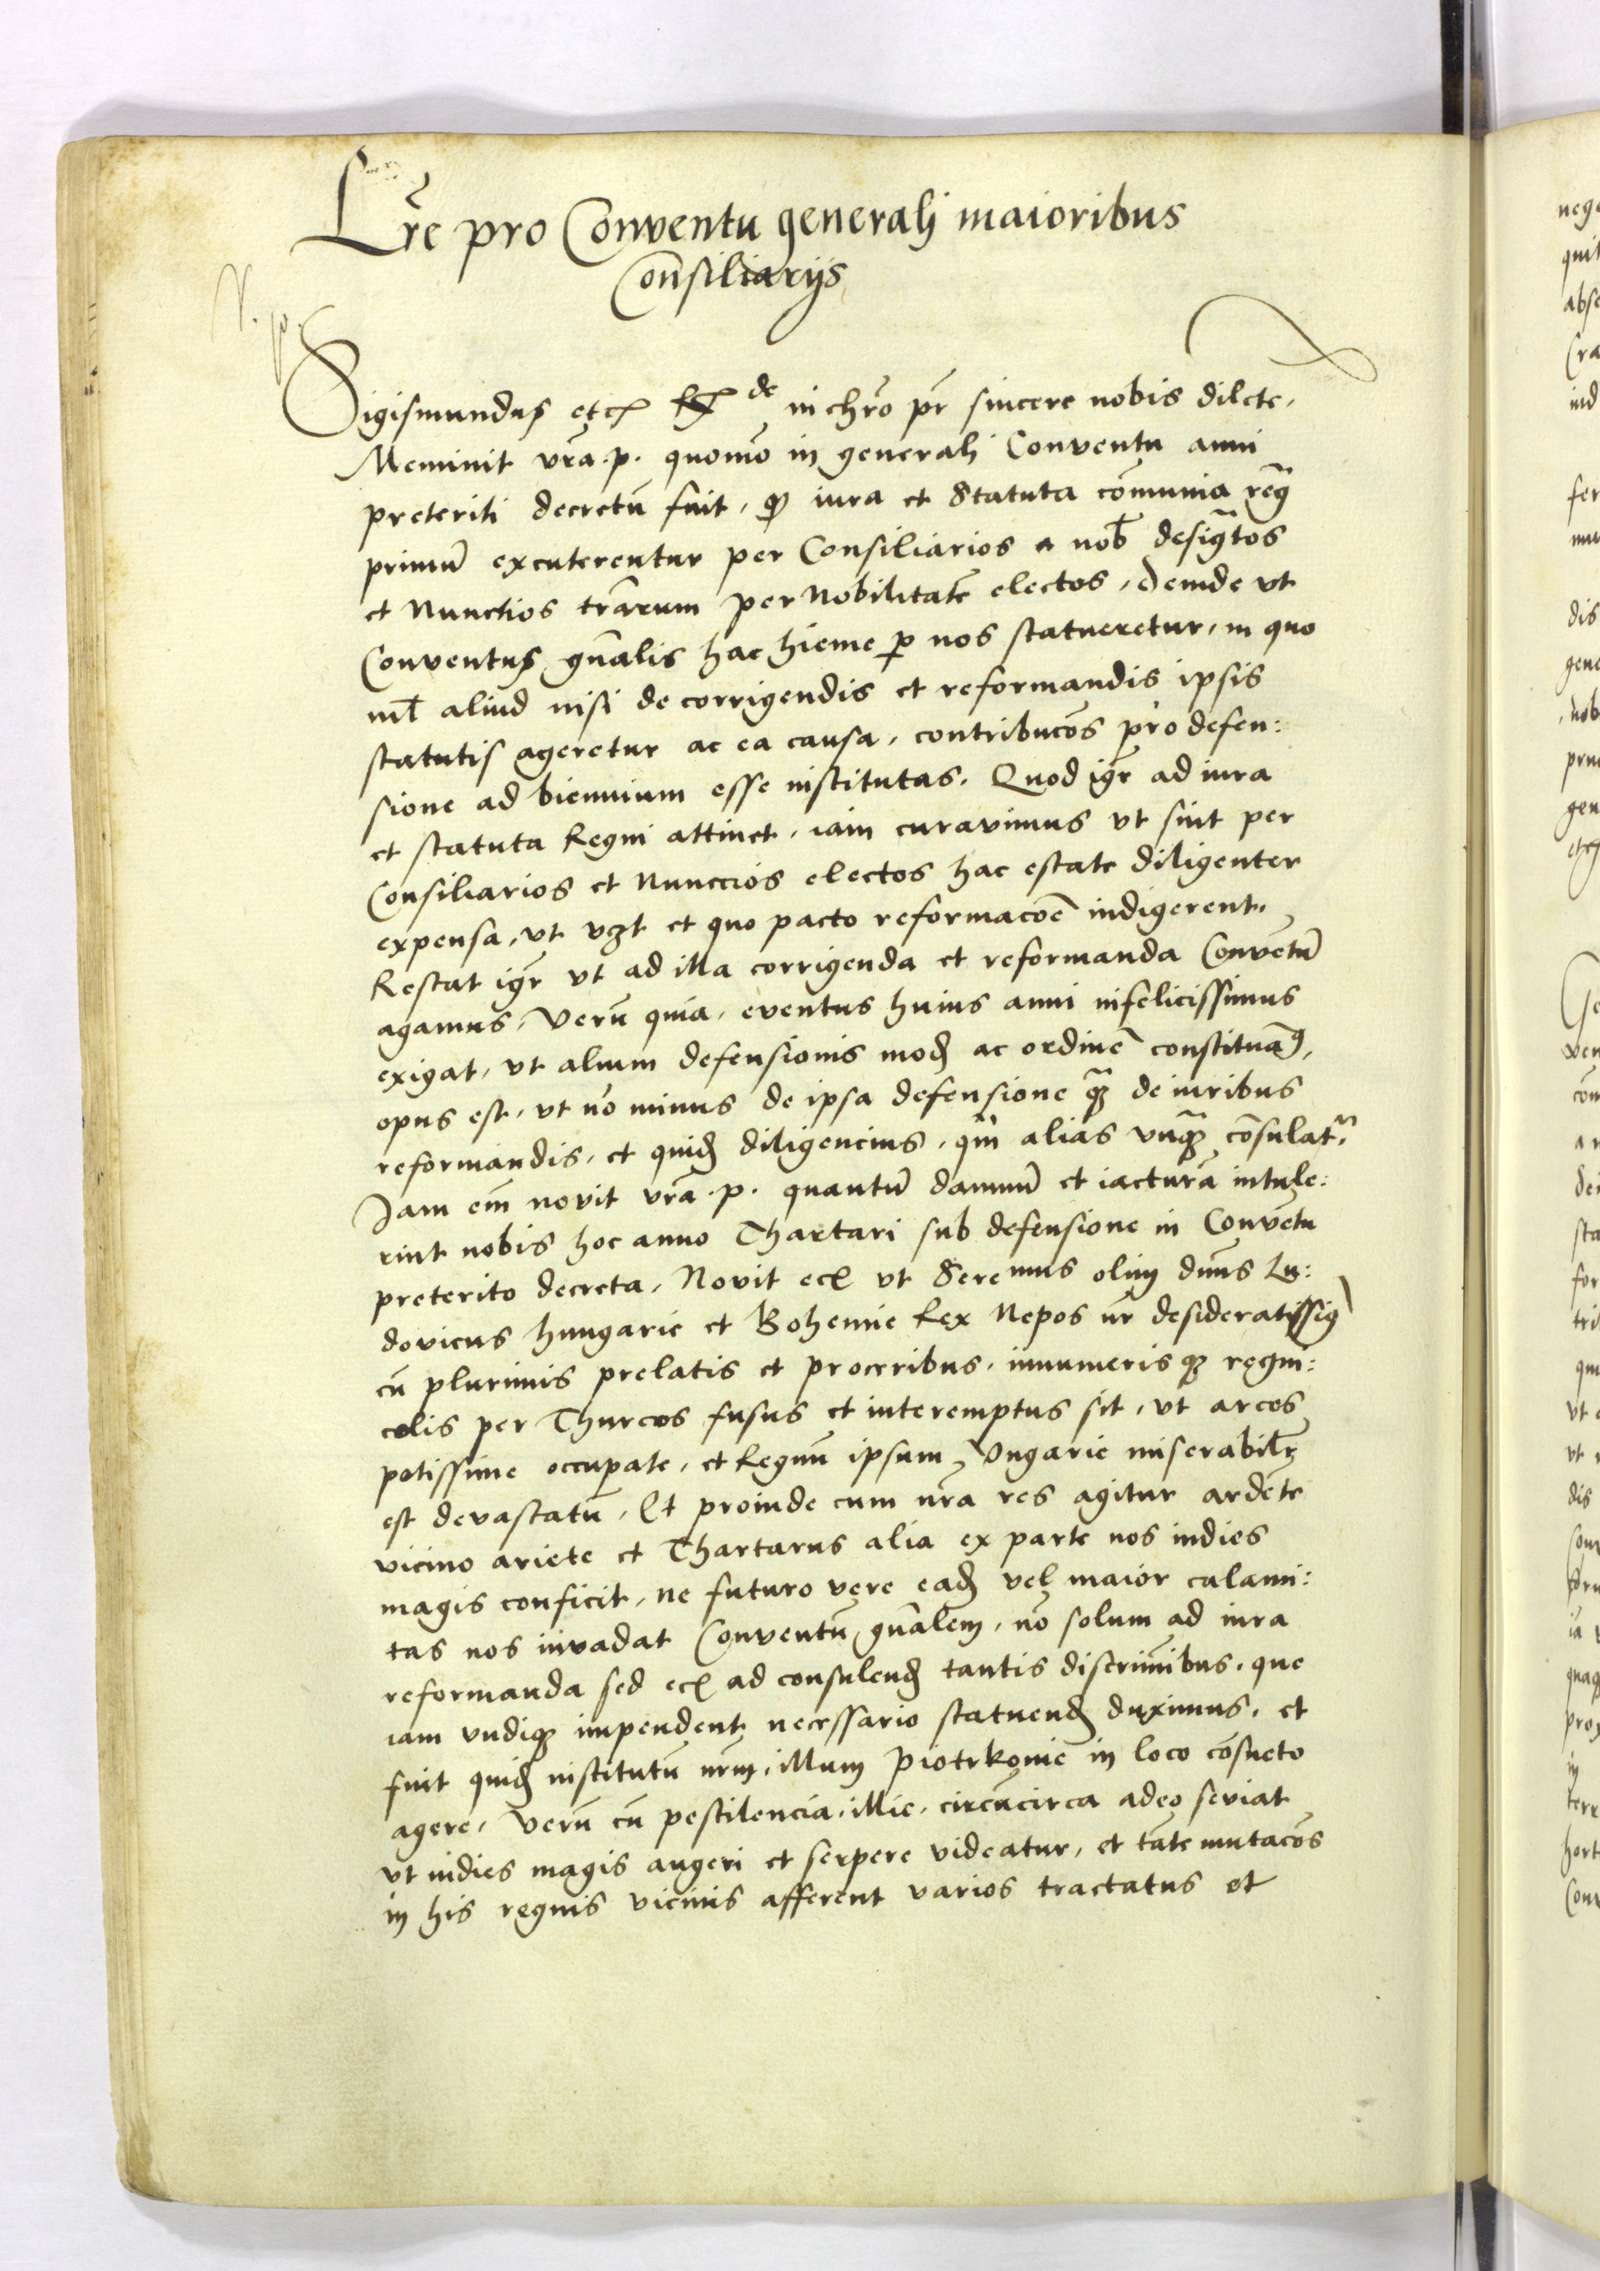 Lr̃e pro Conventu generali maioribus
Consiliarijs
Sigismundus etc̃ Rde in chr̃o pr̃ sincere nobis dilcte.
Meminit vr̃a .p. quomo͂ in generali Conventu anni
preteriti decretu͂ fuit, qͥ iura et Statuta com͂unia regͥ
primu͂ excuterentur per Consiliarios a nob̃ desig̃tos
et Nunctios tr̃arum per Nobilitate͂ electos, Deinde vt
Conventus gn̄alis hac hieme ꝑ nos statueretur, in quo
nil̃ aliud nisi de corrigendis et reformandis ipsis
statutis ageretur ac ea causa, contribuco͂s pro defen:
sione ad biennium esse institutas. Quod igr̃ ad iura
et statuta Regni attinet, iam curavimus vt sint per
Consiliarios et Nunccios electos hac estate diligenter
expensa, vt vꝫt et quo pacto reformacoe͂ indigerent.
Restat igr̃ vt ad illa corrigenda et reformanda Conventu͂
agamus, Veru͂ quia, eventus huius anni infelicissimus
exigat, vt alium defensionis mod̃ ac ordine͂ constitua͂ꝰ,
opus est, vt no͂ minus de ipsa defensione q̃ꝫ de iuribus
reformandis, et quid̃ diligencius, qm̃ alias vnq̃ꝫ co͂sulat̃r.
Jam em̃ novit vr̃a .p. quantu͂ damnu͂ et iactura͂ intule:
rint nobis hoc anno Thartari sub defensione in Conve͂tu
preterito decreta, Novit ec̃ vt Serenmus olim dn̄us Lu:
dovicus hungarie et Bohemie Rex Nepos nr̃ desideratissiꝰ
cu͂ plurimis prelatis et proceribus, innumerisqꝫ regni:
colis per Thurcos fusus et interemptus sit, vt arces
potissime occupate, et Regnu͂ ipsum Vngarie miserabilr̃
est devastatu͂, Et proinde cum nr̃a res agitur ardente
vicino ariete et Thartarus alia ex parte nos indies
magis conficit, ne futuro vere ead̃ vel maior calami:
tas nos invadat Conventu͂ gn̄alem, no͂ solum ad iura
reformanda sed ec̃ ad consulend̃ tantis discrimi͂bus, que
iam vndiqꝫ impendent necessario statuend̃ duximus, et
fuit quid̃ institutu͂ nr̃m, illum Piotrkovie in loco co͂sueto
agere, Veru͂ cu͂ pestilencia, illic, circu͂circa adeo seviat
vt indies magis augeri et serpere videatur, et ta͂te mutaco͂s
in his regnis vicinis afferent varios tractatus et